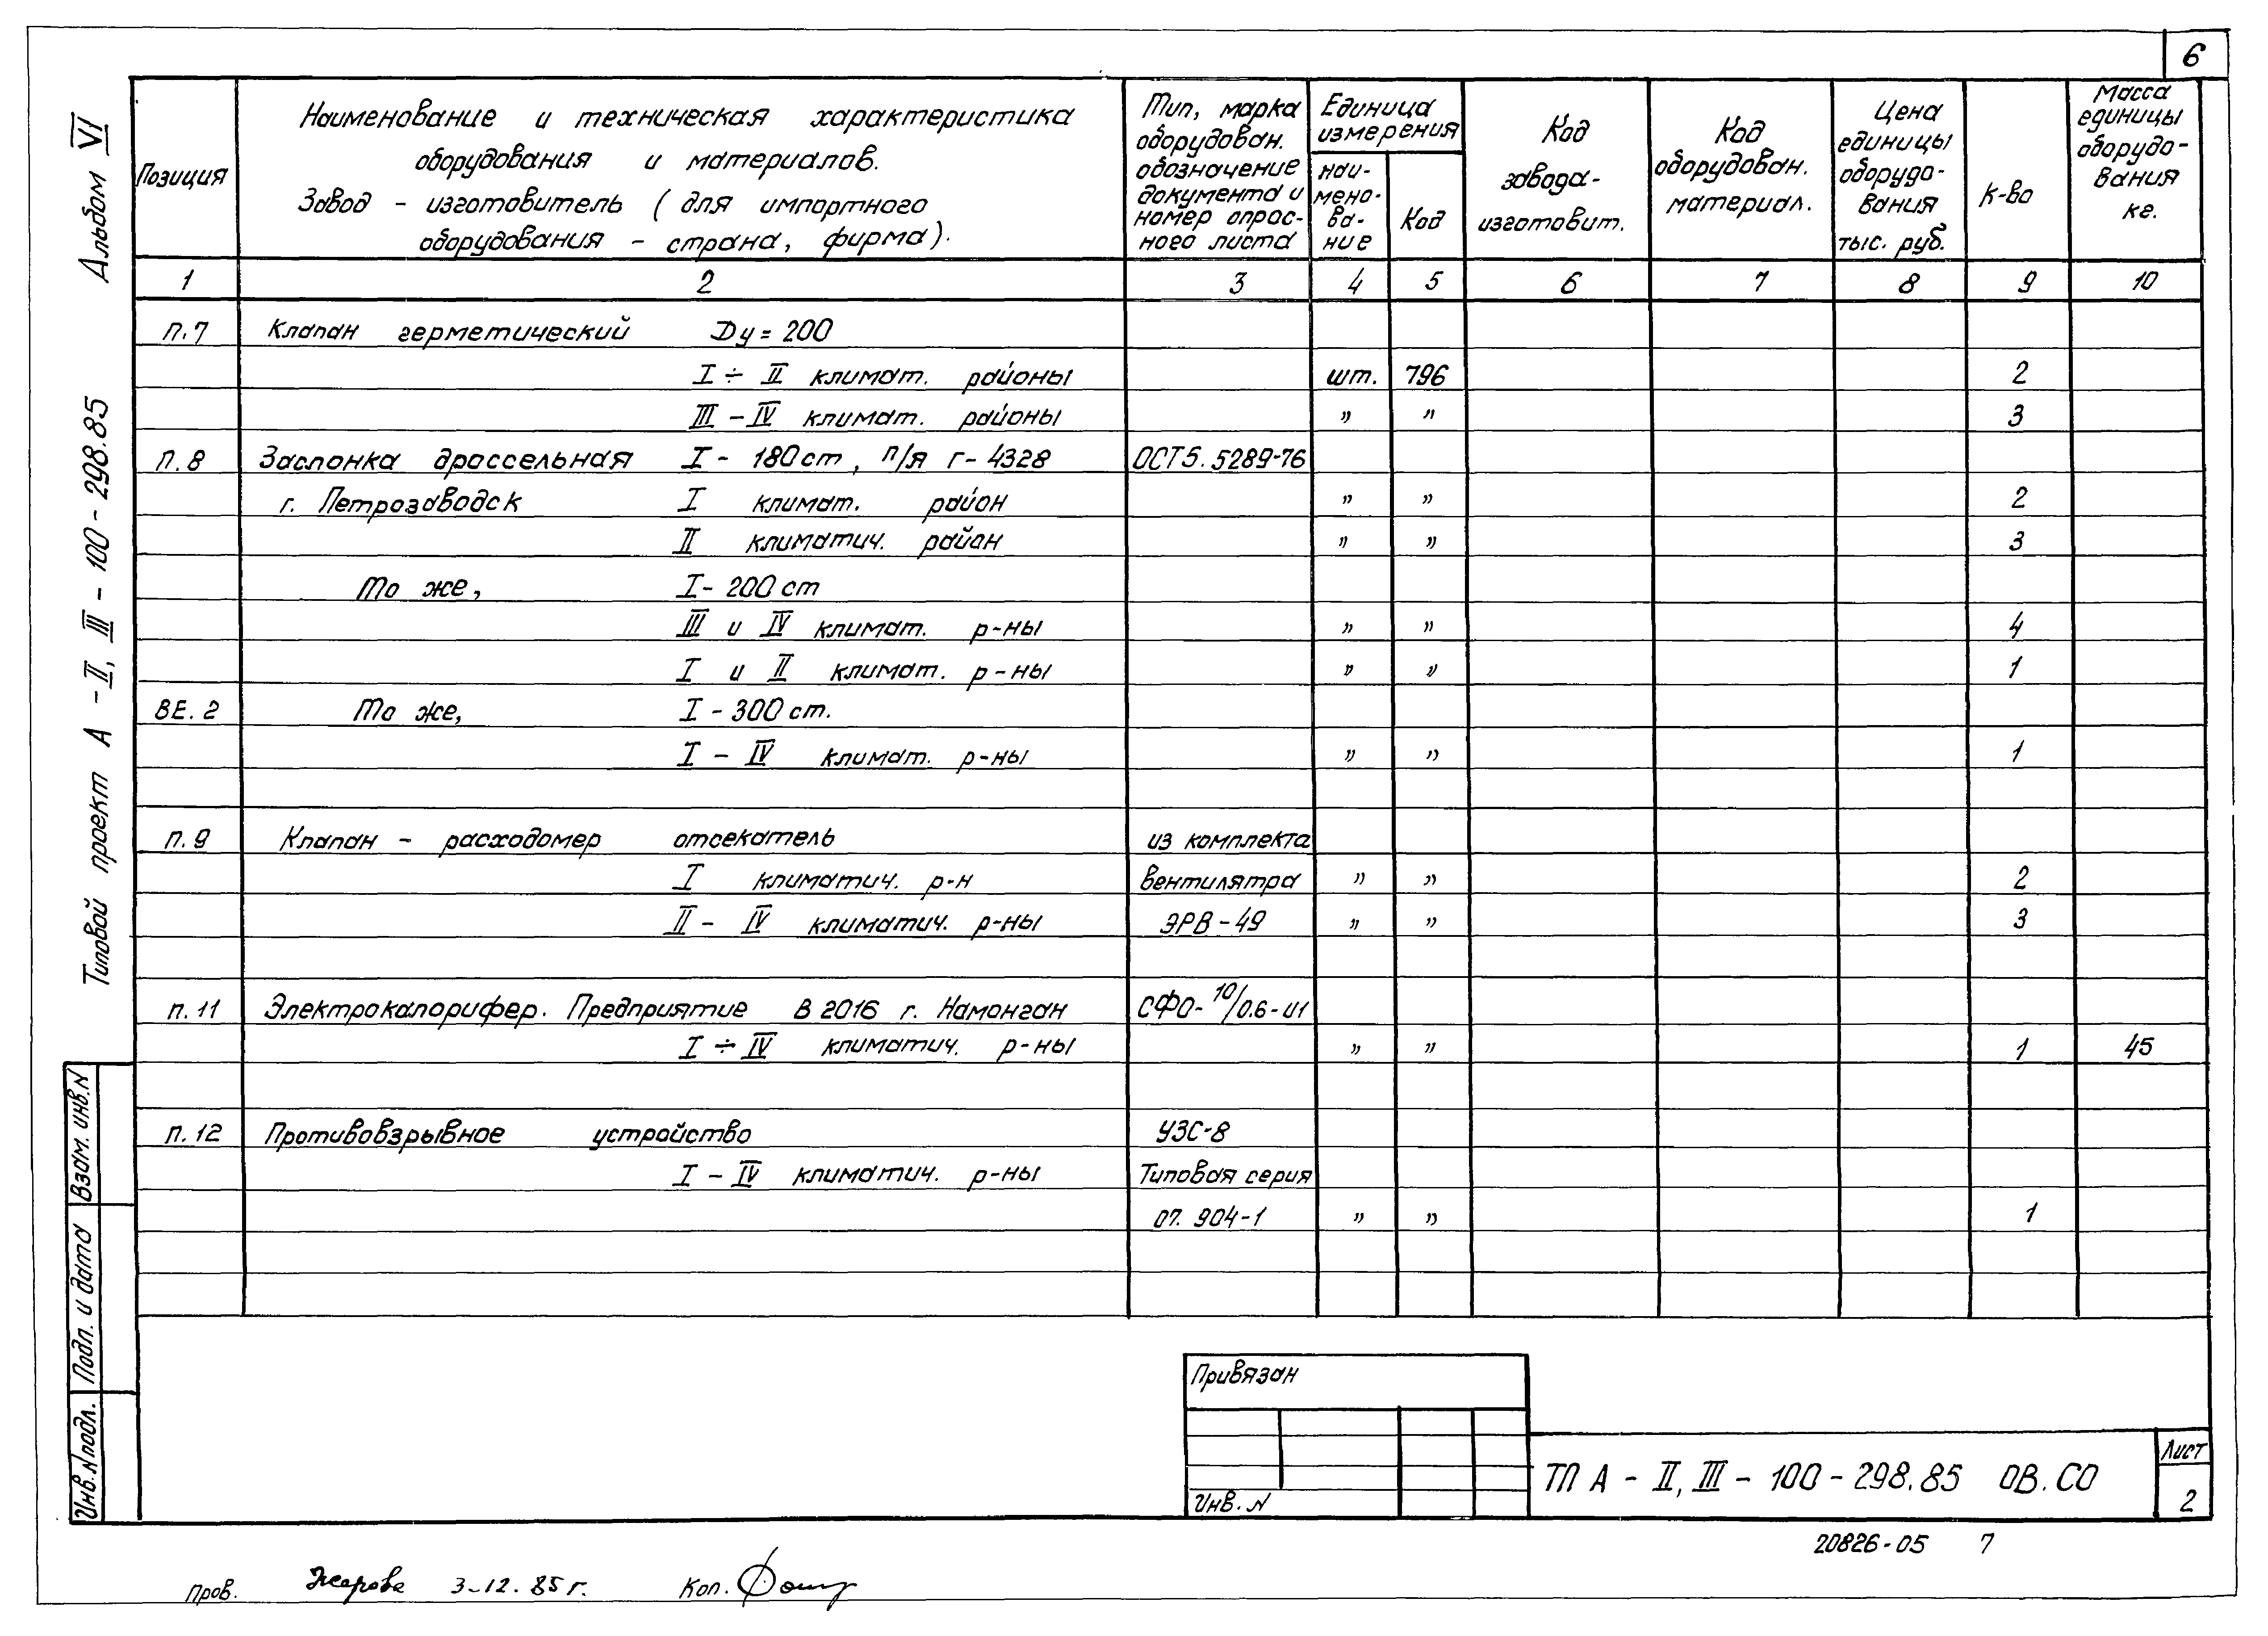 6
Альбом VI
Типовой проект А - II, III - 100 - 298.85
Позиция
Наименование и техническая характеристика
оборудования и материалов.
Завод - изготовитель (для импортного
оборудования - страна, фирма).
Тип, марка
оборудован.
обозначение
документа и
номер опрос-
ного листа
Единица
измерения
наи-
мено-
ва-
ние
Код
Код
завода-
изготовит.
Код
оборудован.
материал.
Цена
единицы
оборудо-
вания
тыс. руб.
К-во
Масса
единицы
оборудо-
вания
кг.
1 2 3 4 5 6 7 8 9 10
П.7 Клапан герметический Dу = 200
I ÷ II климат. районы шт. 796 2
III - IV климат. районы " " 3
П.8 Заслонка дроссельная I - 180 ст, п/я г-4328 ОСТ5.5289-76
г. Петрозаводск I климат. район " " 2
II климатич. район " " 3
То же, I - 200 ст
III и IV климат. р-ны " " 4
I и II климат. р-ны " " 1
ВЕ.2 То же, I - 300 ст.
I - IV климат. р-ны " " 1
П.9 Клапан - расходомер отсекатель из комплекта
I климатич. р-н вентилятра " " 2
II - IV климатич. р-ны ЭРВ-49 " " 3
П.11 Электрокалорифер. Предприятие В 2016 г. Наманган СФО-10/0.6-И1
I ÷ IV климатич. р-ны " " 1 45
П.12 Противовзрывное устройство УЗС-8
I - IV климатич. р-ны Типовая серия
07.904-1 " " 1
Взам. инв.N
Подп. и дата
Инв.Nподл.
Привязан
Инв. N
ТП А - II, III - 100 - 298.85 ОВ.СО
Лист
2
20826-05 7
Пров. Жарова 3-12.85г. Коп.